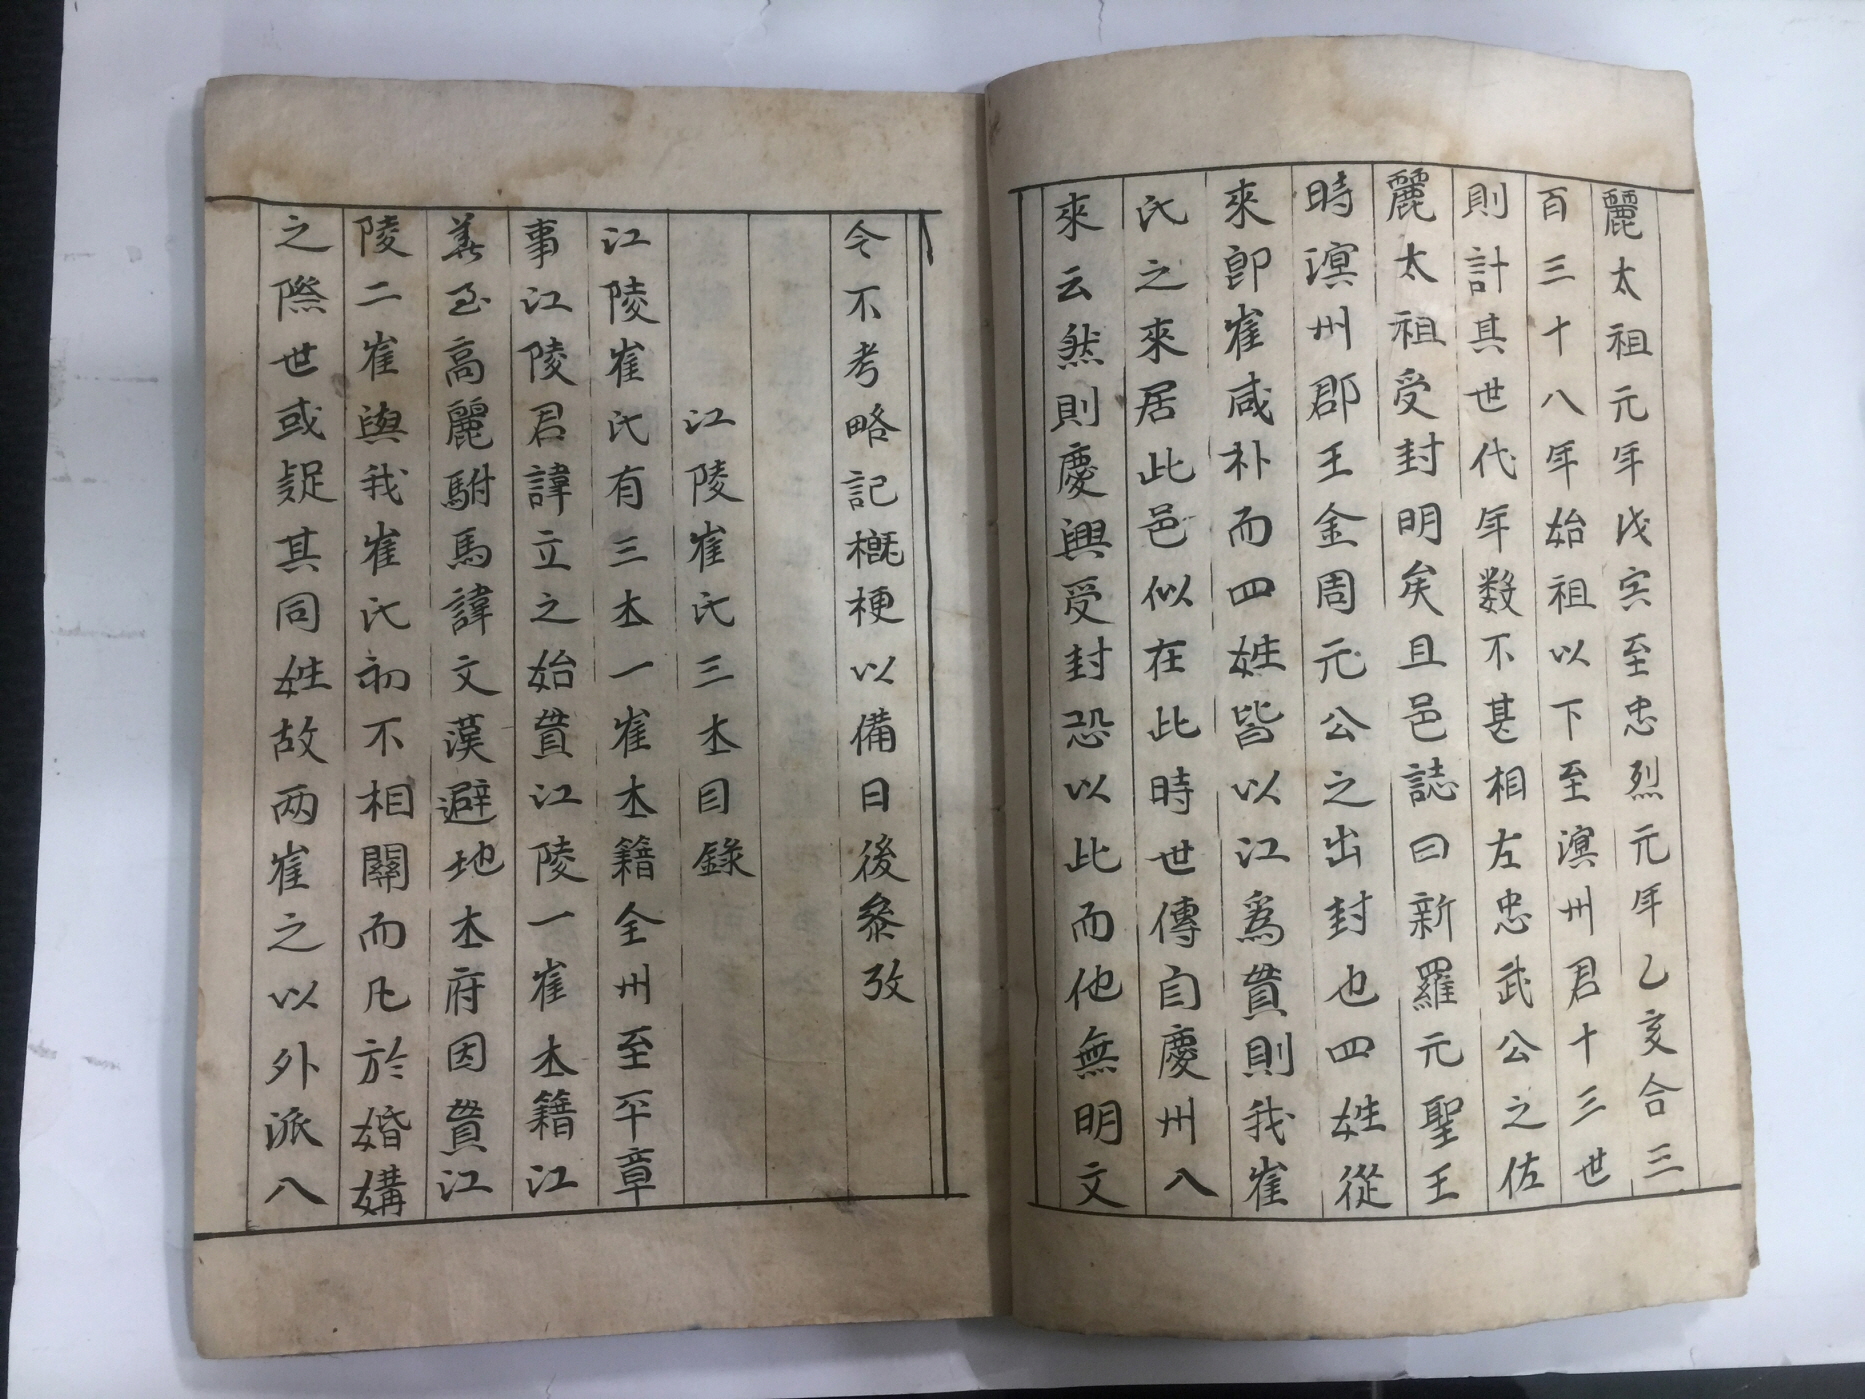 麗太祖元年戊寅至忠烈元年乙亥合三
百三十八年始祖以下至溟州君十三世
則計其世代年数不甚相左忠武公之佐
麗太祖受封明矣且邑誌曰新羅元聖王
時溟州郡王金周元公之出封也四姓從
來卽崔咸朴而四姓皆以江爲貫則我崔
氏之來居此邑似在此時世傳自慶州入
來云然則慶興受封恐以此而他無明文
今不考略記槪梗以備日後叅攷
江陵崔氏三本目錄
江陵崔氏有三本一崔本籍全州至平章
事江陵君諱立之始貫江陵一崔本籍江
華至高麗駙馬諱文漢避地本府因貫江
陵二崔與我崔氏初不相關而凡於婚媾
之際世或疑其同姓故两崔之以外派入